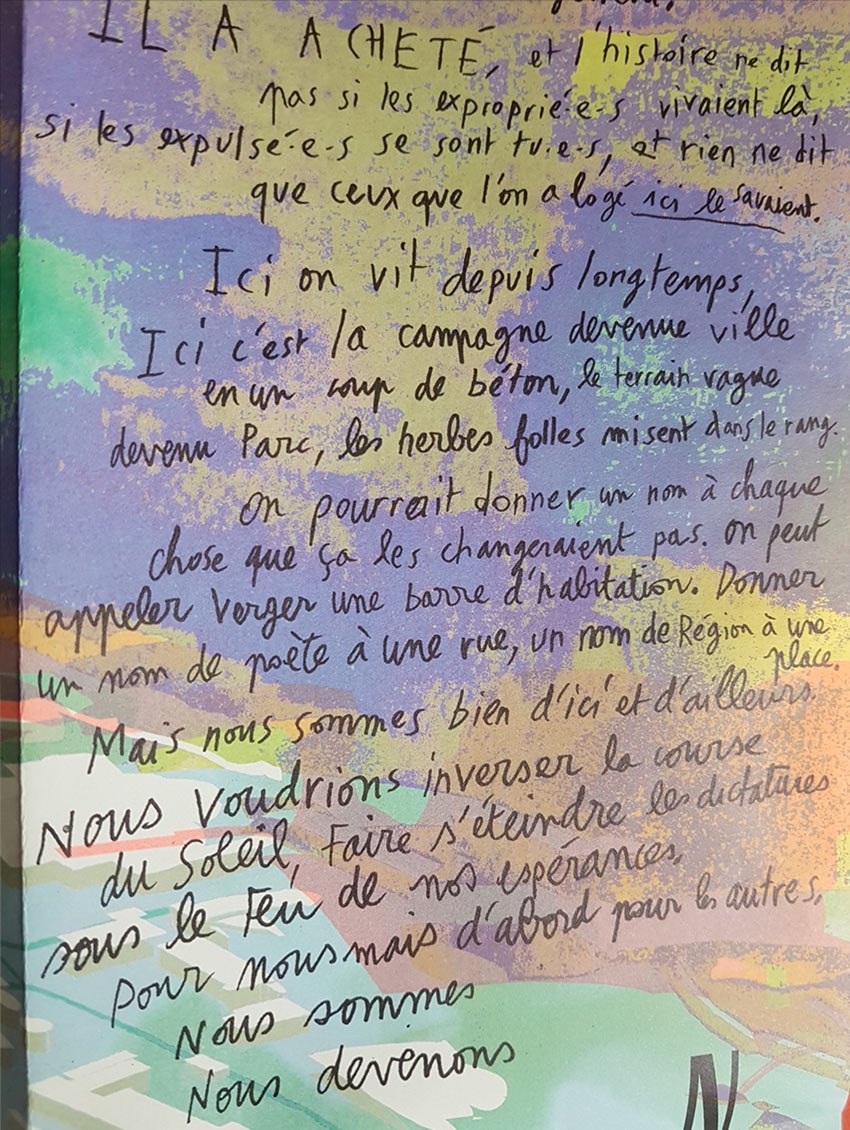 IL A ACHETÉ, et l'histoire ne dit
pas si les exproprié·e·s vivaient là,
si les expulsé·e·s se sont tu·e·s, et rien ne dit
que ceux que l'on a logé ici le savaient.
Ici on vit depuis longtemps,
Ici c'est la campagne devenue ville
en un coup de béton, le terrain vague
devenu Parc, les herbes folles misent dans le rang.
On pourrait donner un nom à chaque
chose que ça les changeraient pas. On peut
appeler Verger une barre d'habitation. Donner
un nom de poète à une rue, un nom de Région à une
place.
Mais nous sommes bien d'ici et d'ailleurs
Nous voudrions inverser la course
du Soleil, Faire s'éteindre les dictatures
sous le Feu de nos espérances,
pour nous mais d'abord pour les autres,
Nous sommes
Nous devenons
N